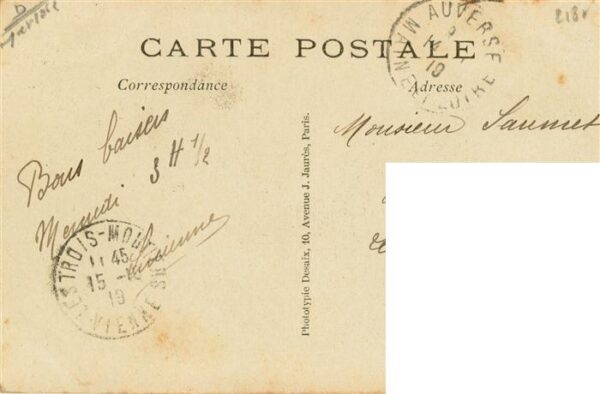 CARTE POSTALE
Correspondance
Adresse
Bons baisers
3 H 1/2
Mercredi
Lucienne
Monsieur Saumet
Phototypie Desaix, 10, Avenue J. Jaurès, Paris.
AUVERSE
MAINE ET LOIRE
19
LES TROIS-MOUT
11 45
15
19
VIENNE
218